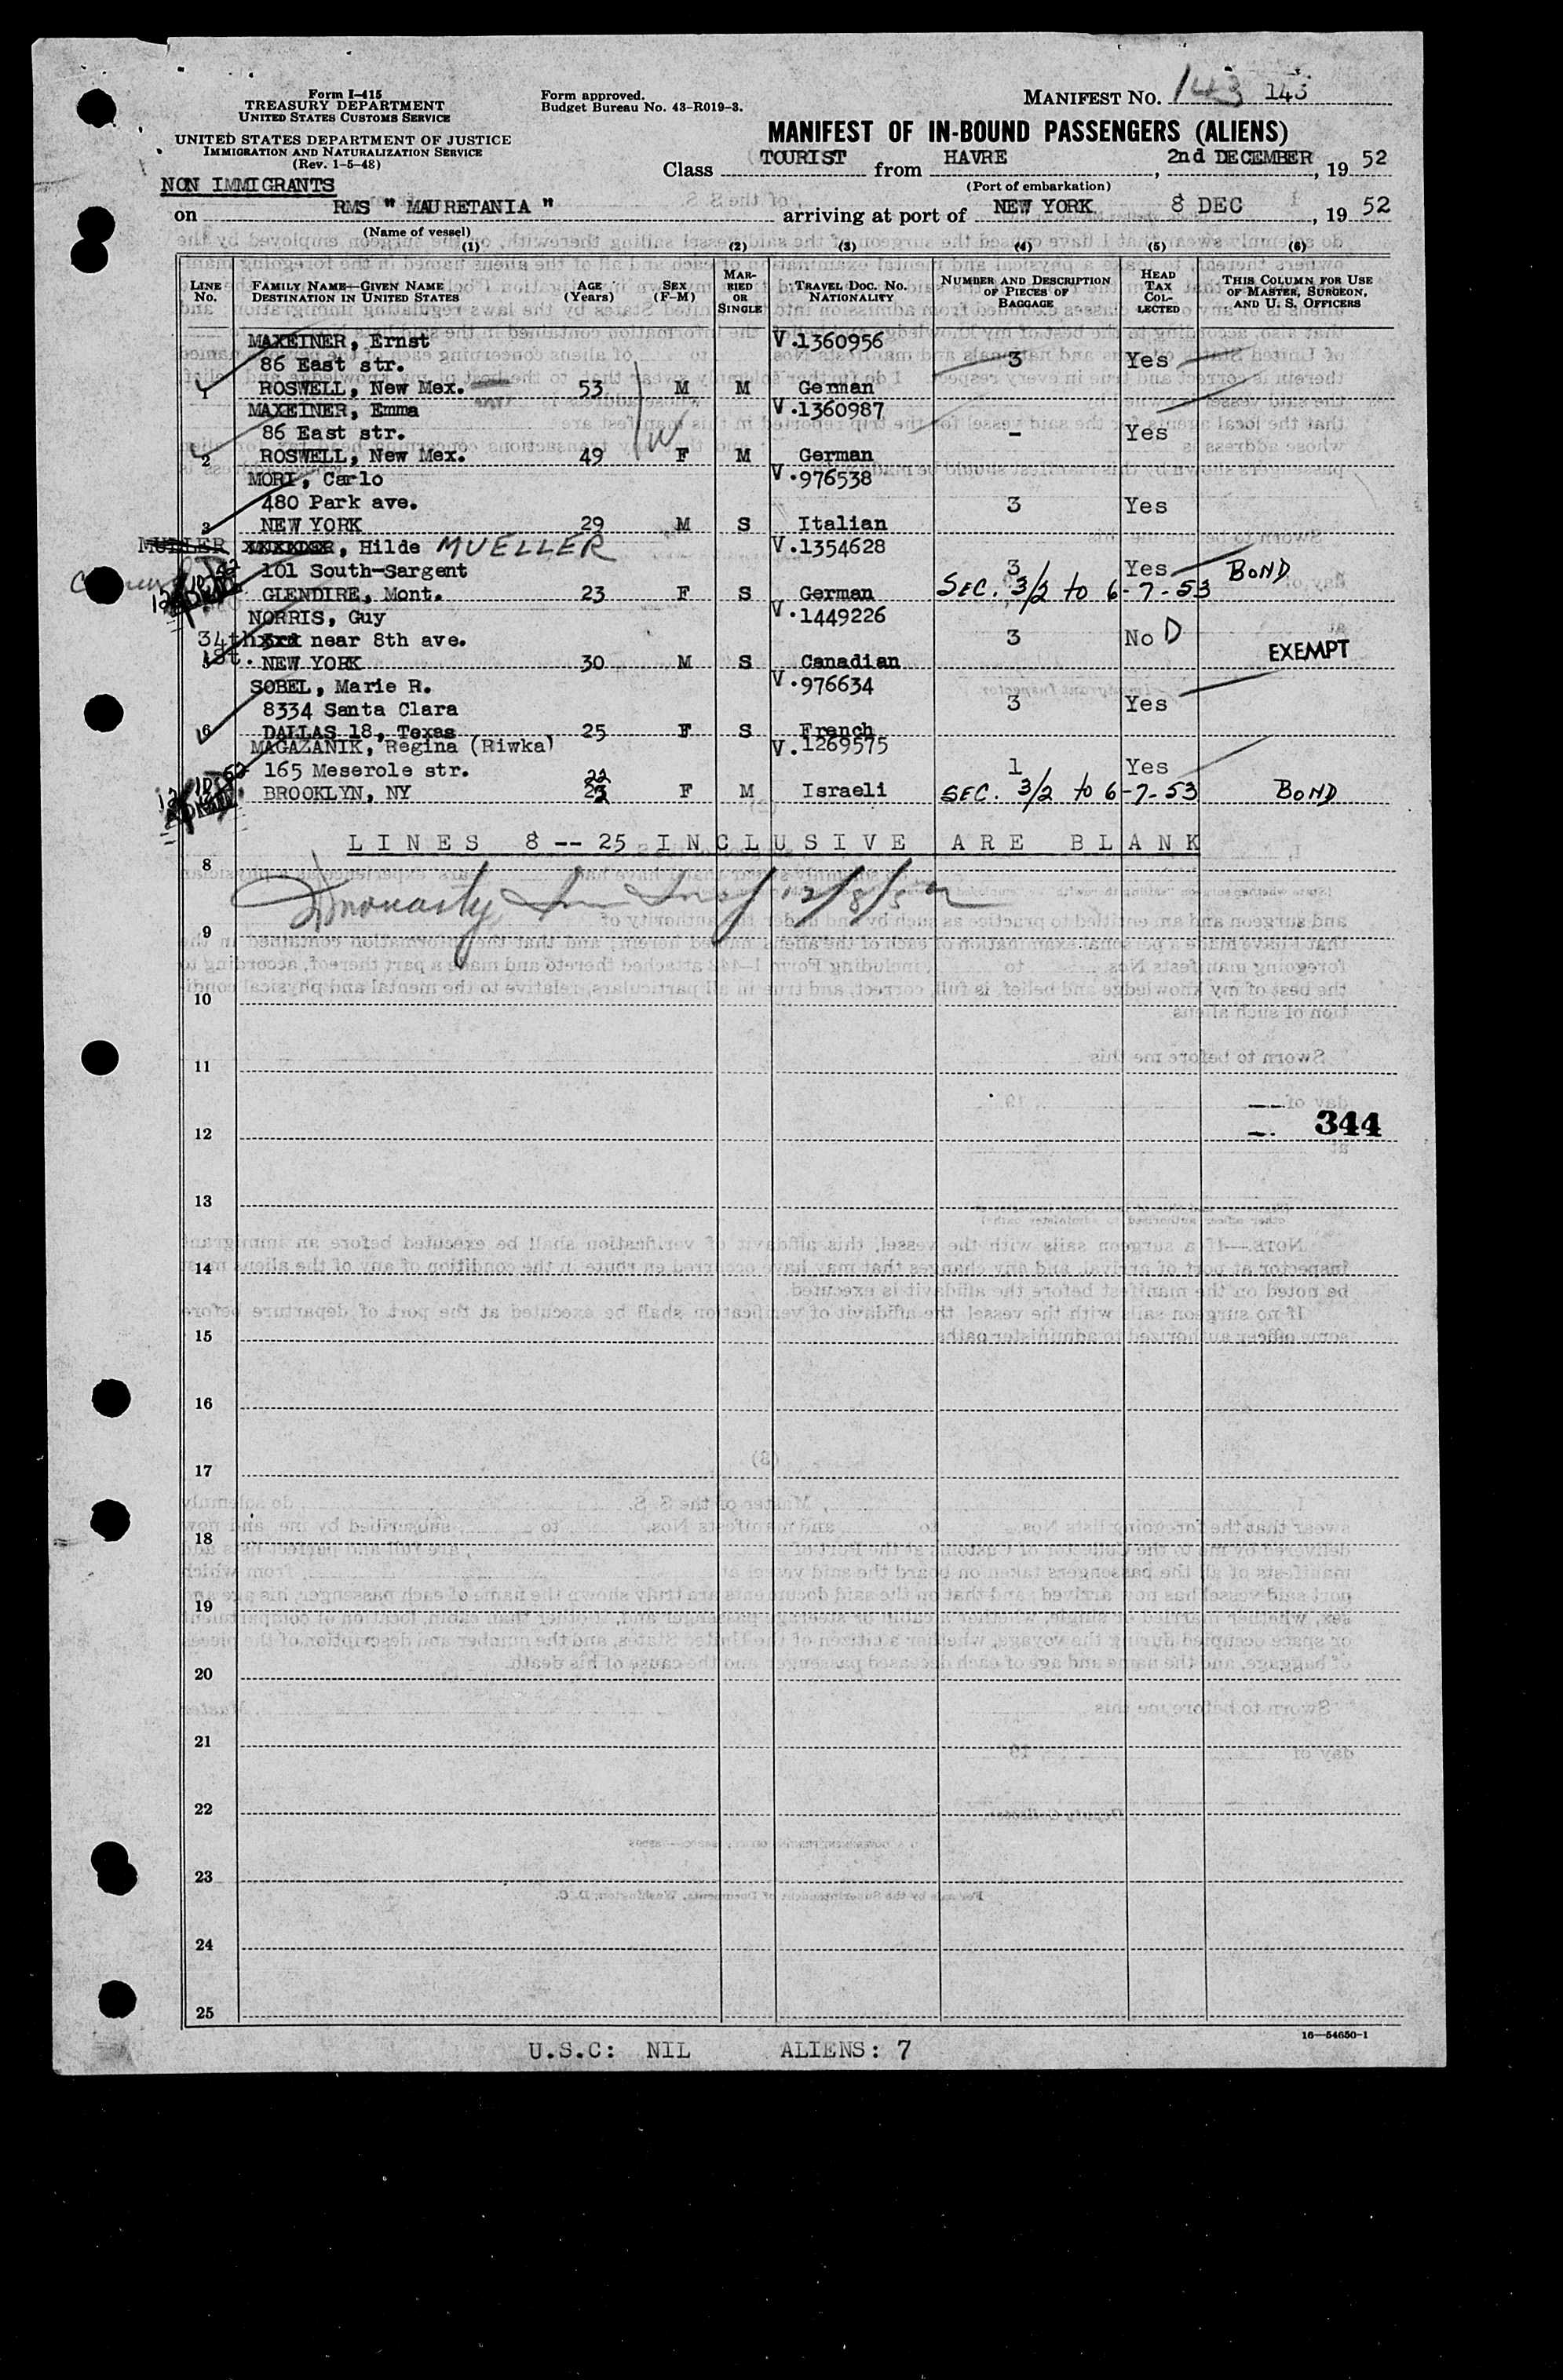 Form I-415
TREASURY DEPARTMENT
UNITED STATES CUSTOMS SERVICE
UNITED STATES DEPARTMENT OF JUSTICE
IMMIGRATION AND NATURALIZATION SERVICE
(Rev. 1-5-48)
Form approved.
Budget Bureau No. 43-R019-3.
MANIFEST NO. 143 143
MANIFEST OF IN-BOUND PASSENGERS (ALIENS)
Class TOURIST from HAVRE, 2nd DECEMBER, 19 52
(Port of embarkation)
NON IMMIGRANTS
on RMS " MAURETANIA " arriving at port of NEW YORK 8 DEC, 19 52
(Name of vessel)
(1) (2) (3) (4) (5) (6)
LINE No. FAMILY NAME—GIVEN NAME DESTINATION IN UNITED STATES AGE (Years) SEX (F-M) MARRIED OR SINGLE TRAVEL DOC. NO. NATIONALITY NUMBER AND DESCRIPTION OF PIECES OF BAGGAGE HEAD TAX COLLECTED THIS COLUMN FOR USE OF MASTER, SURGEON, AND U. S. OFFICERS
MAXEINER, Ernst V.1360956
86 East str. 3 Yes
1 ROSWELL, New Mex. 53 M M German
MAXEINER, Emma V.1360987
86 East str. - Yes
2 ROSWELL, New Mex. 49 F M German
MORI, Carlo V.976538
480 Park ave. 3 Yes
3 NEW YORK 29 M S Italian
MULLER, Hilde MUELLER V.1354628
101 South-Sargent 3 Yes BOND
GLENDIRE, Mont. 23 F S German SEC. 3/2 to 6-7-53
NORRIS, Guy V.1449226
34th 3rd near 8th ave. 3 No D
st. NEW YORK 30 M S Canadian EXEMPT
SOBEL, Marie R. V.976634
8334 Santa Clara 3 Yes
6 DALLAS 18, Texas 25 F S French
MAGAZANIK, Regina (Riwka) V.1269575
165 Meserole str. 22 1 Yes
BROOKLYN, NY F M Israeli SEC. 3/2 to 6-7-53 BOND
LINES 8 -- 25 INCLUSIVE ARE BLANK
8
12/8/52
9
10
11
12
344
13
14
15
16
17
18
19
20
21
22
23
24
25
16—54650-1
U.S.C: NIL ALIENS: 7